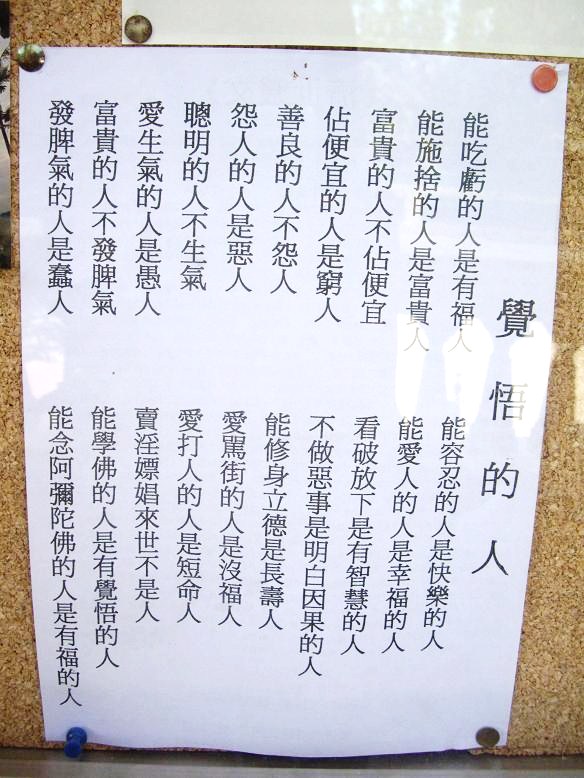 覺悟的人
能吃虧的人是有福人
能施捨的人是富貴人
富貴的人不佔便宜
佔便宜的人是窮人
善良的人不怨人
怨人的人是惡人
聰明的人不生氣
愛生氣的人是愚人
富貴的人不發脾氣
發脾氣的人是蠢人
能容忍的人是快樂的人
能愛人的人是幸福的人
看破放下是有智慧的人
不做惡事是明白因果的人
能修身立德是長壽人
愛罵街的人是沒福人
愛打人的人是短命人
賣淫嫖娼來世不是人
能學佛的人是有覺悟的人
能念阿彌陀佛的人是有福的人